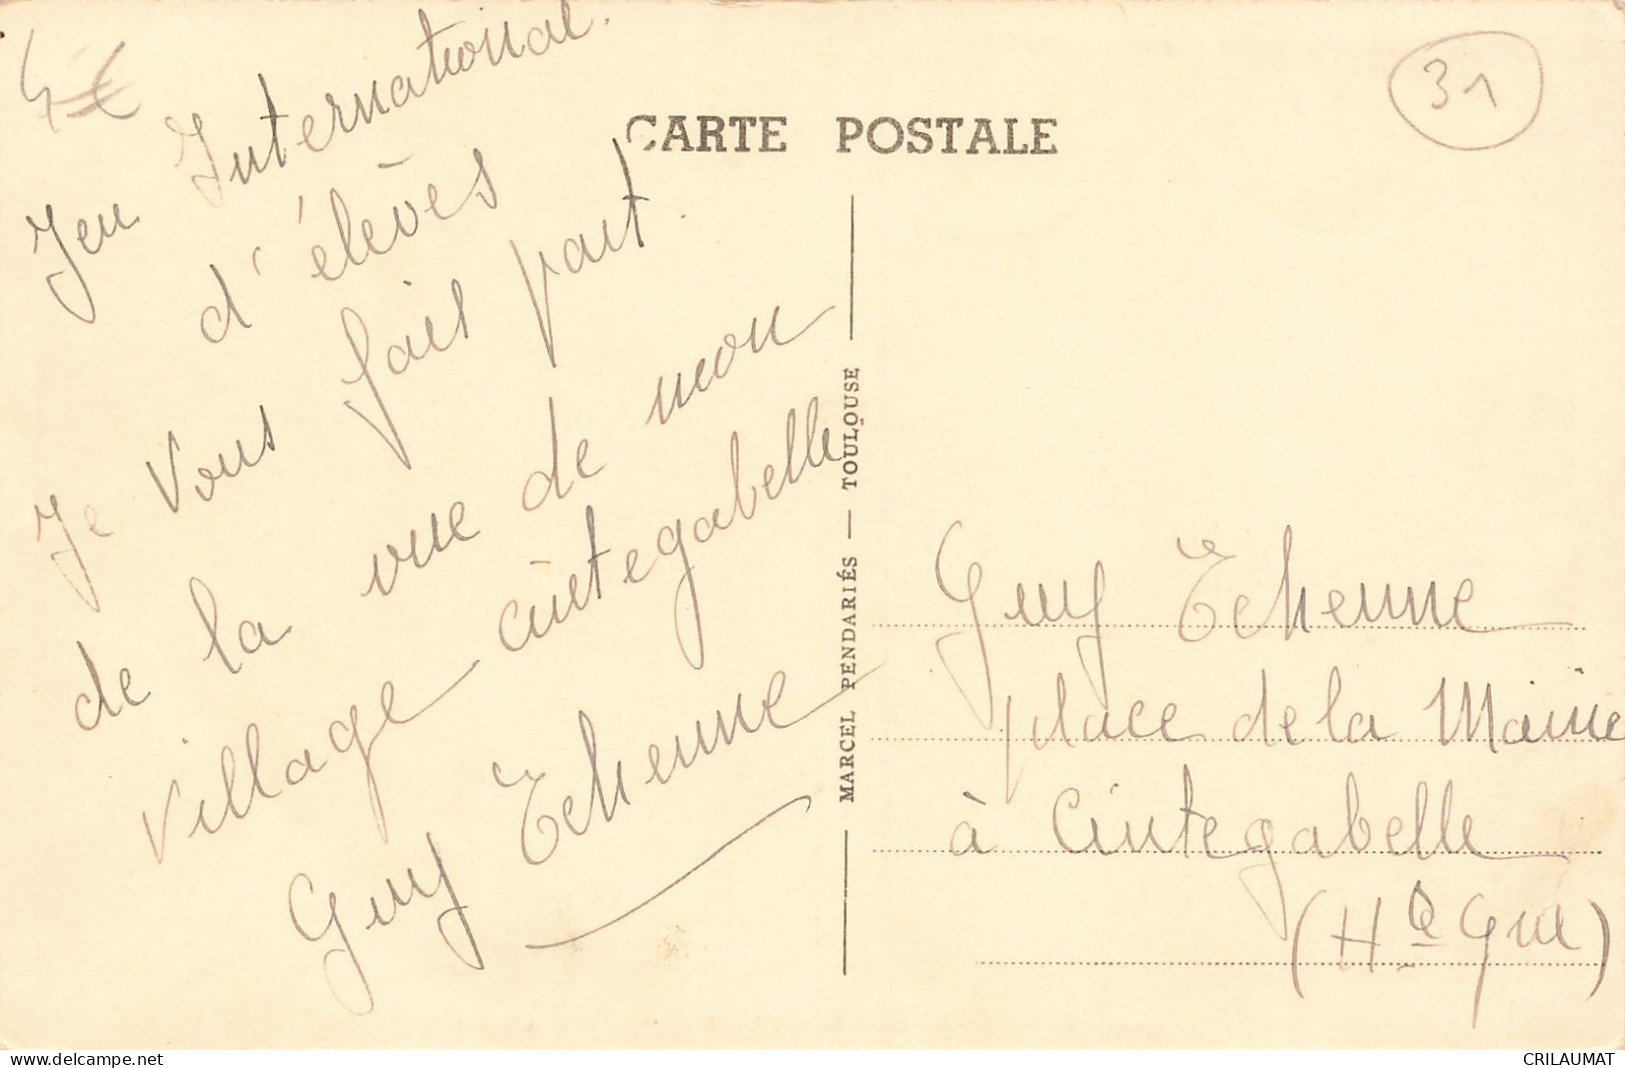 4€
Jeu International.
d'élèves
Je vous fais part.
de la vue de mon
village cintegabelle
Guy Tchenne
CARTE POSTALE
31
MARCEL PENDARIÉS — TOULOUSE
Guy Tchenne
place de la Mairie
à Cintegabelle
(Hte Gne)
www.delcampe.net
CRILAUMAT